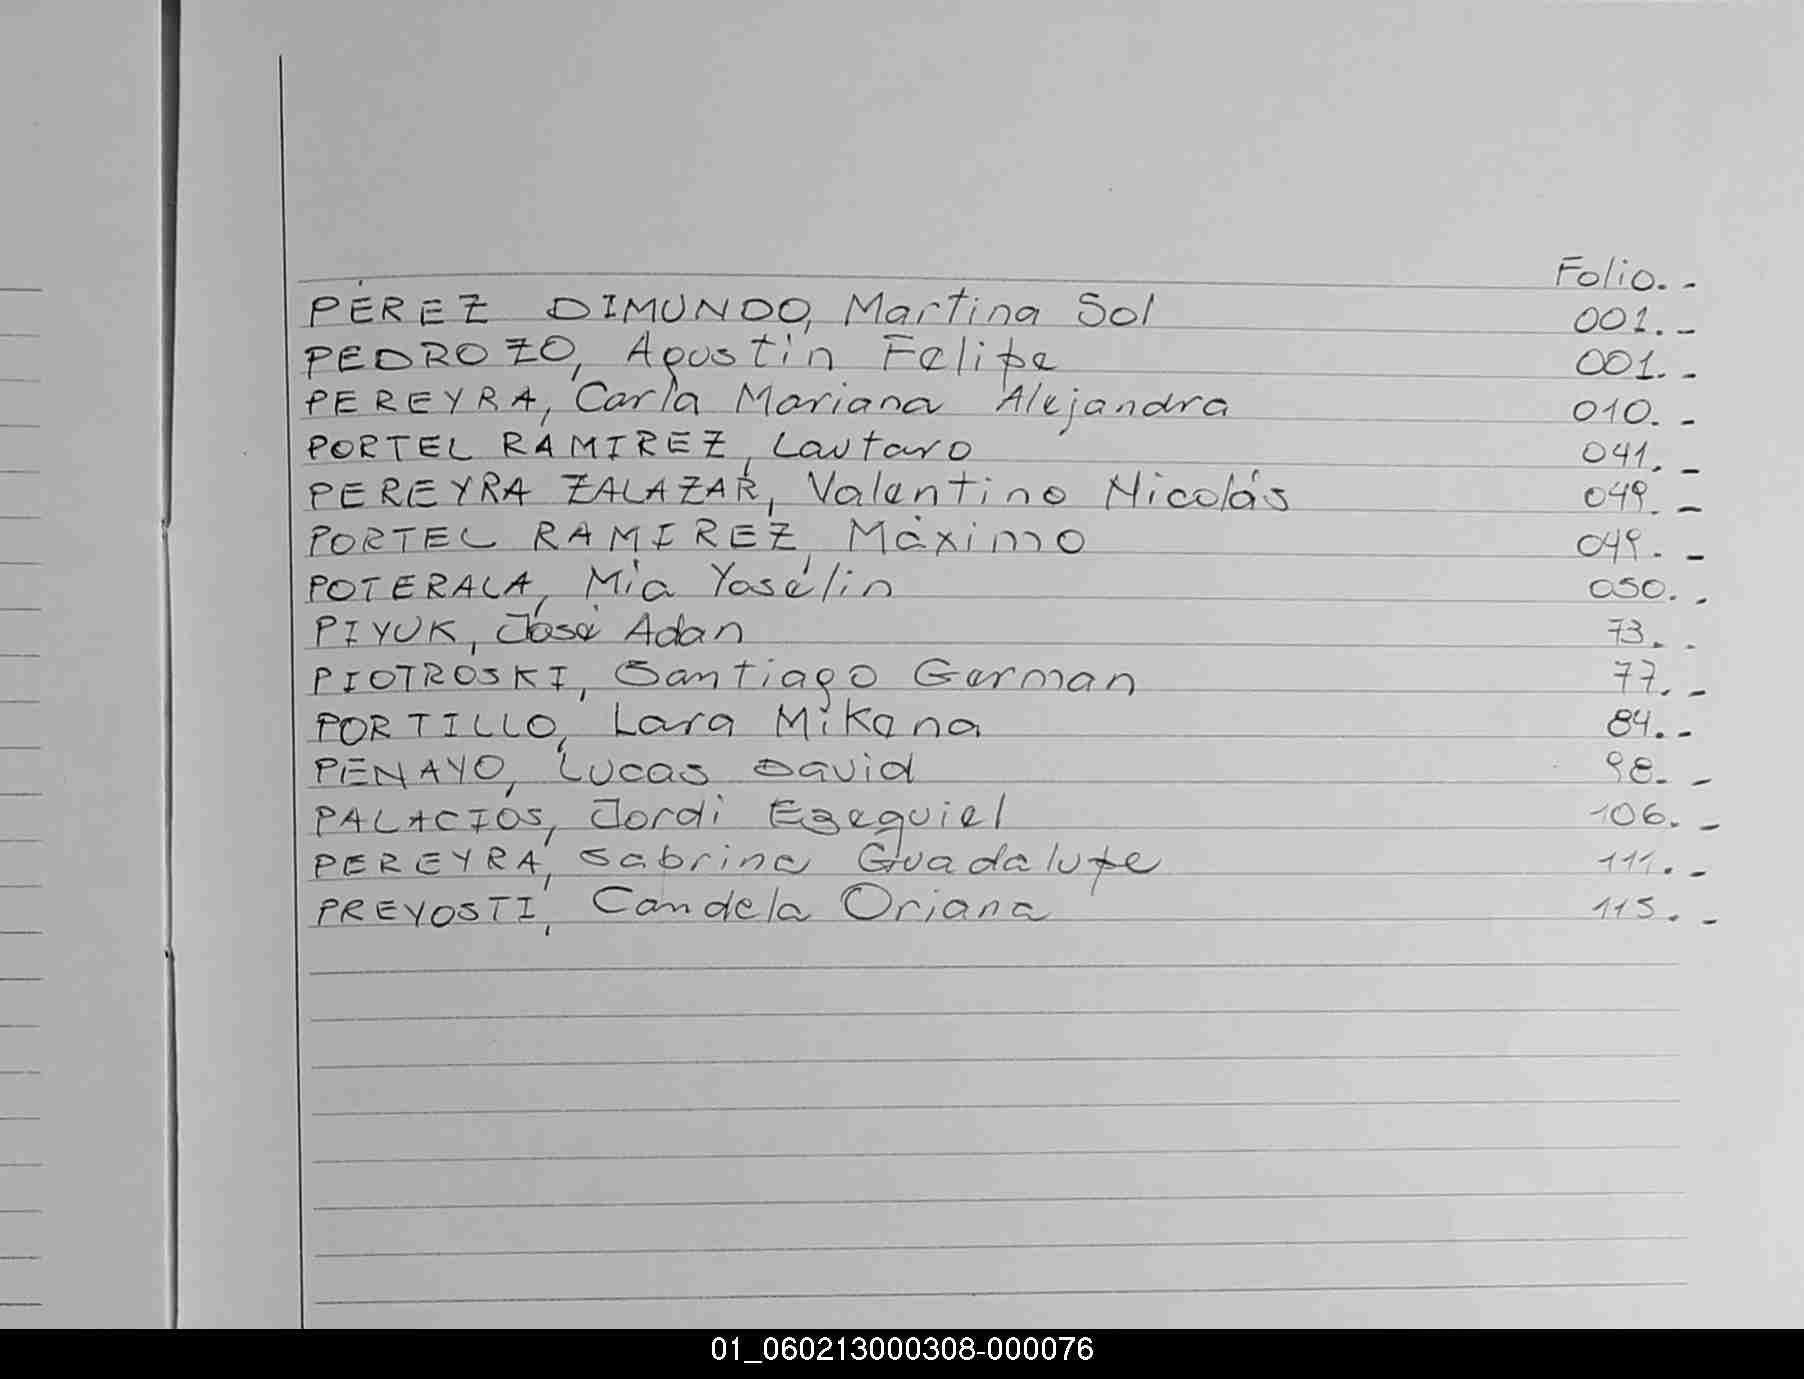 Folio.-
PÉREZ DIMUNDO, Martina Sol 001.-
PEDROZO, Agustín Felipe 001.-
PEREYRA, Carla Mariana Alejandra 010.-
PORTEL RAMIREZ, Lautaro 041.-
PEREYRA ZALAZAR, Valentino Nicolás 049.-
PORTEL RAMIREZ, Máximo 049.-
POTERALA, Mía Yosélin 050.-
PIYUK, José Adan 73.-
PIOTROSKI, Santiago German 77.-
PORTILLO, Lara Mikena 84.-
PENAYO, Lucas David 98.-
PALACIOS, Jordi Ezequiel 106.-
PEREYRA, Sabrina Guadalupe 111.-
PREVOSTI, Candela Oriana 115.-
01_060213000308-000076